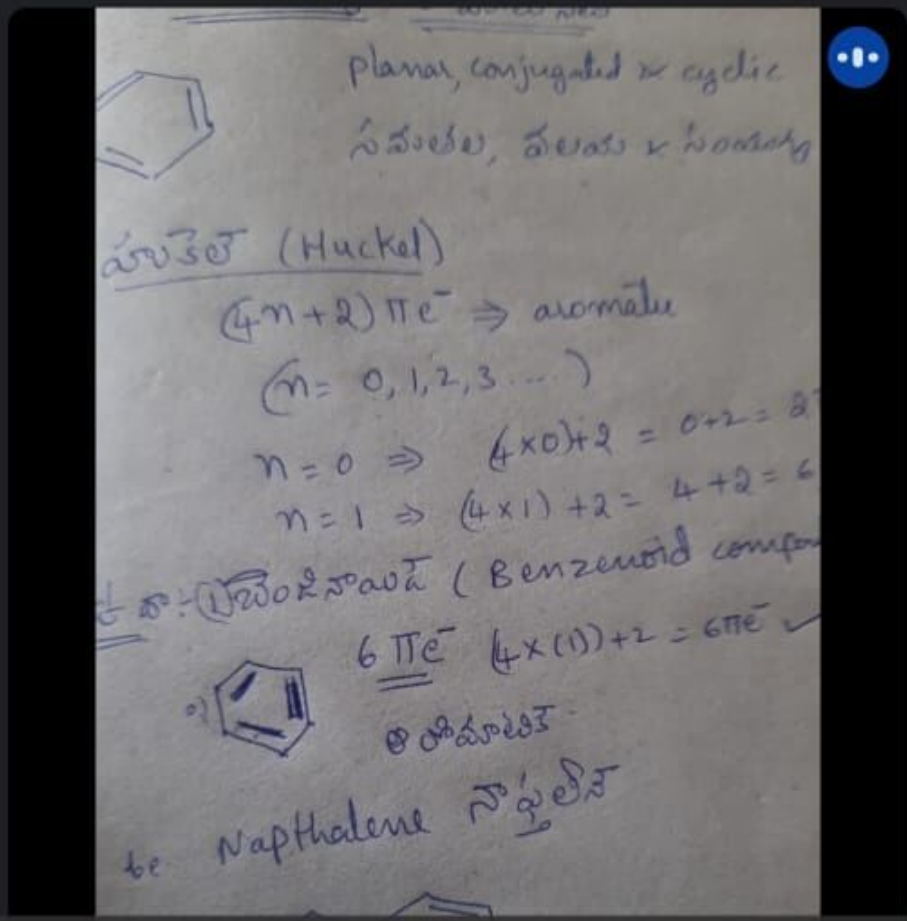 planar, conjugated & cyclic
సమతల, వలయ &
హుకెల్ (Huckel)
(4n+2) πe⁻ ⇒ aromatic
(n= 0,1,2,3 ....)
n=0 ⇒ (4×0)+2 = 0+2 = 2
n=1 ⇒ (4×1)+2 = 4+2 = 6
(Benzenoid
6 πe⁻ (4×(1))+2 = 6πe⁻ ✓
a)
ఆరోమాటిక్
Napthalene నాఫ్తలీన్